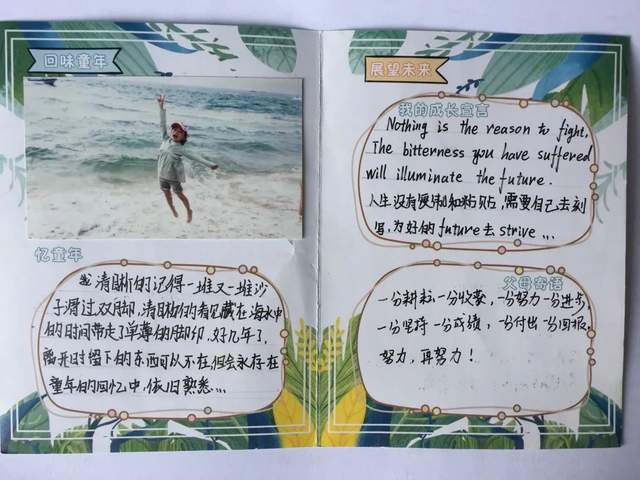 回味童年
忆童年
我清晰的记得一堆又一堆沙
子滑过双脚,清晰的看见藏在海水中
的时间带走了单薄的脚印,好几年了,
离开时留下的东西可以不在,但会永存在
童年的回忆中,依旧熟悉...
展望未来
我的成长宣言
Nothing is the reason to fight.
The bitterness you have suffered
will illuminate the future.
人生没有复制和粘贴,需要自己去刻
写,为好的future去strive...
父母寄语
一份耕耘一份收获,一份努力一份进步
一份坚持一份成绩,一份付出一份回报
努力,再努力!